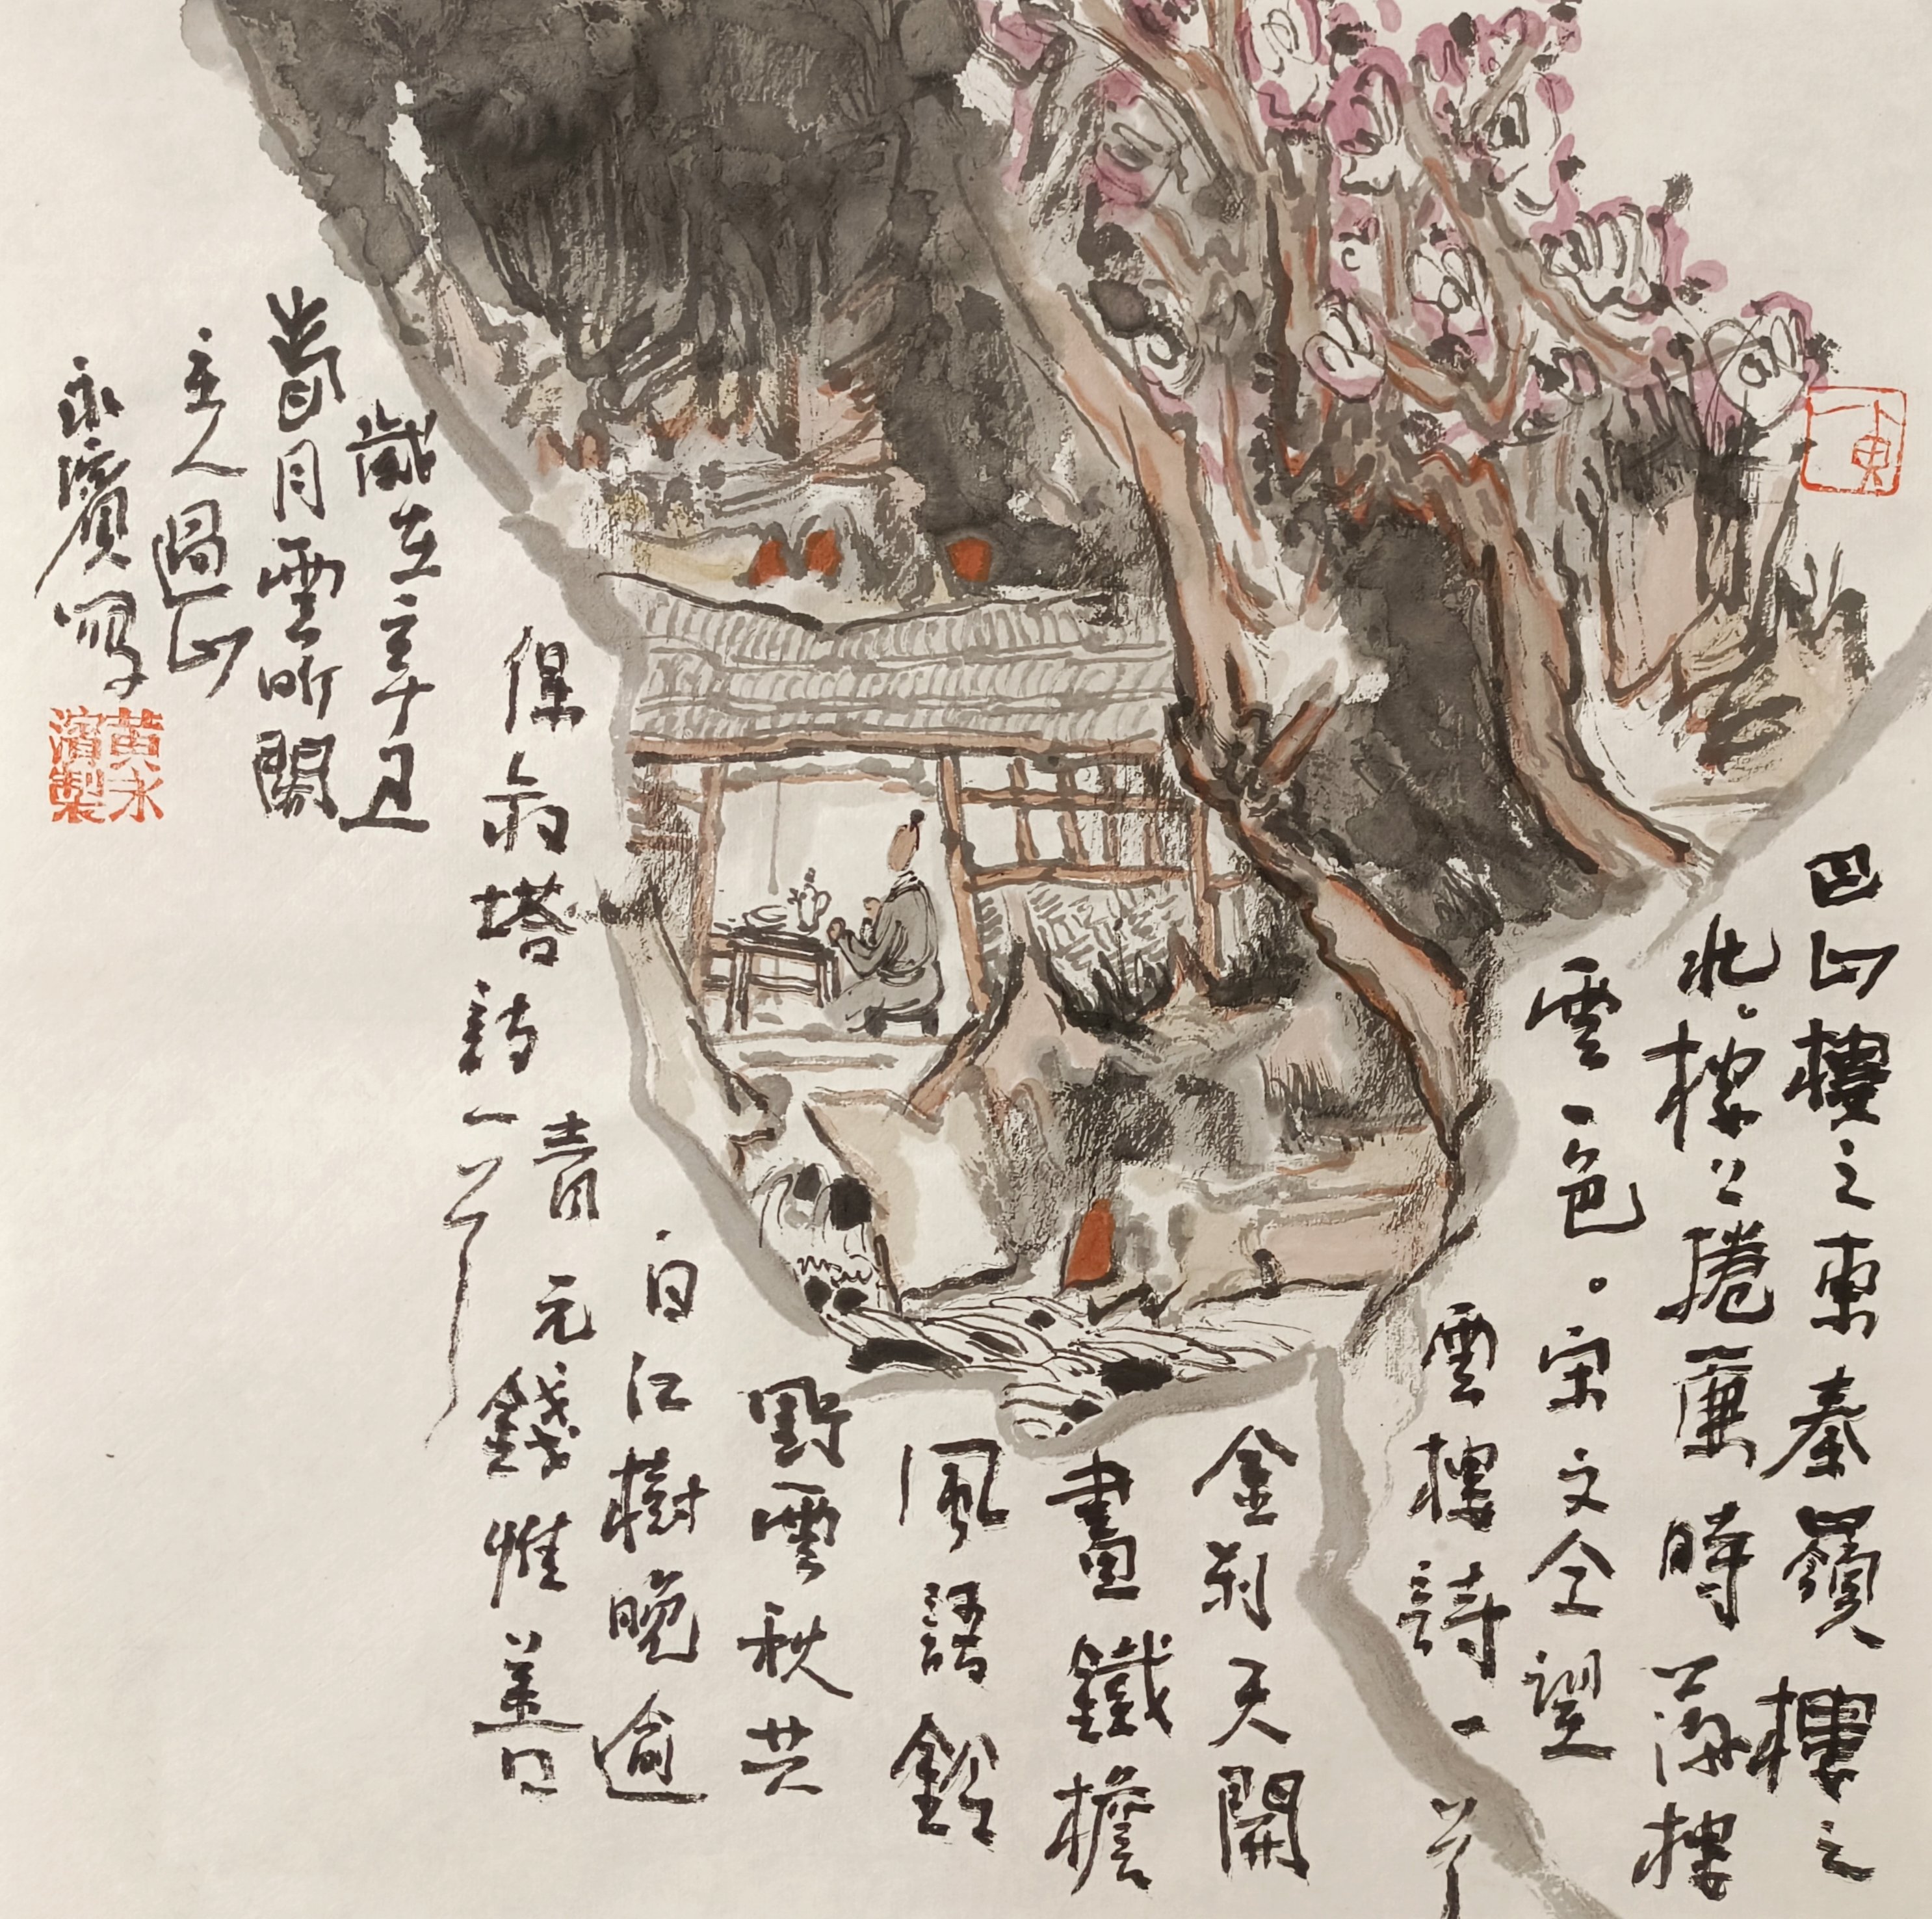 巴山樓之東秦嶺樓之
北。樓上捲簾時滿樓
雲一色。宋文仝望
雲樓詩一首
金刹天開
畫鐵檐
風語鈴
野雲秋共
白江樹晚逾
青 元錢惟善
保俶塔詩一首
歲在辛丑
月雲昕閣
主人過山
永濱寫
黃永濱製